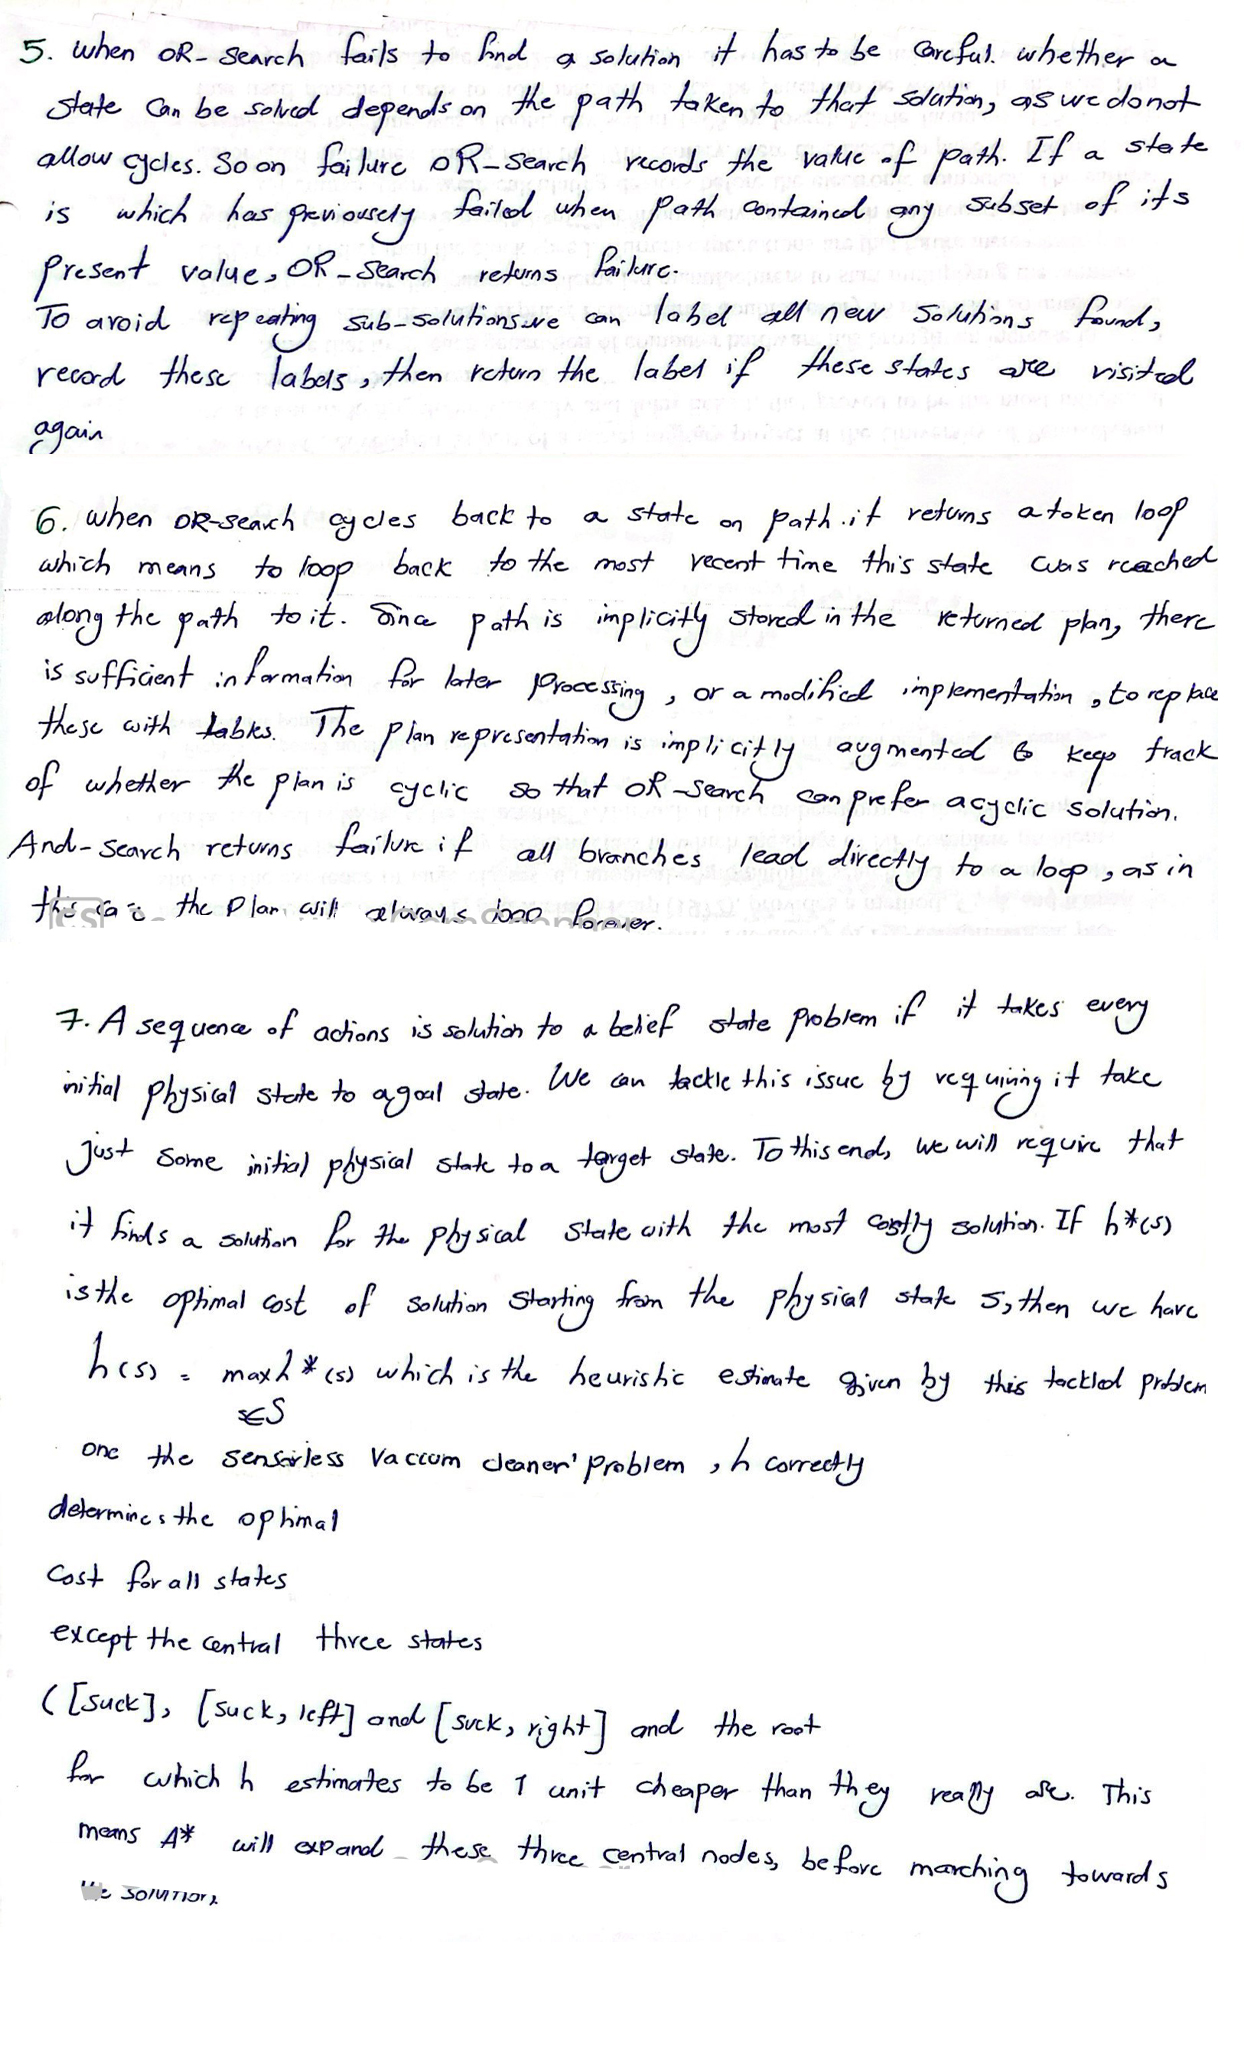 5. when OR-Search fails to find a solution it has to be careful. whether a
state can be solved depends on the path taken to that solution, as we donot
allow cycles. So on failure OR-search records the value of path. If a state
is which has previousely failed when path contained any subset of its
present value, OR-Search returns failure.
To avoid repeating sub-solutionswe can label all new solutions found,
record these labels, then return the label if these states are visited
again
6. when OR-search cycles back to a state on path.it returns a token loop
which means to loop back to the most recent time this state was reached
along the path to it. Since path is implicitly stored in the returned plan, there
is sufficient information for later processing, or a modified implementation, to replace
these with lables. The plan representation is implicitly augmented to keep track
of whether the plan is cyclic so that OR-search can prefer acyclic solution.
And-search returns failure if all branches lead directly to a loop, as in
this case the plan will always loop forever.
7. A sequence of actions is solution to a belief state problem if it takes every
initial physical state to a goal state. We can tackle this issue by requiring it take
just some initial physical state to a target state. To this end, we will require that
it finds a solution for the physical state with the most costly solution. If h*(s)
is the optimal cost of solution starting from the physical state s, then we have
h(s) = max h*(s) which is the heuristic estimate given by this tackled problem
s∈S
one the senserless Vaccum cleaner' problem, h correctly
determines the optimal
Cost for all states
except the central three states
([suck], [suck, left] and [suck, right] and the root
for which h estimates to be 1 unit cheaper than they really are. This
means A* will expand these three central nodes, before marching towards
the solution.